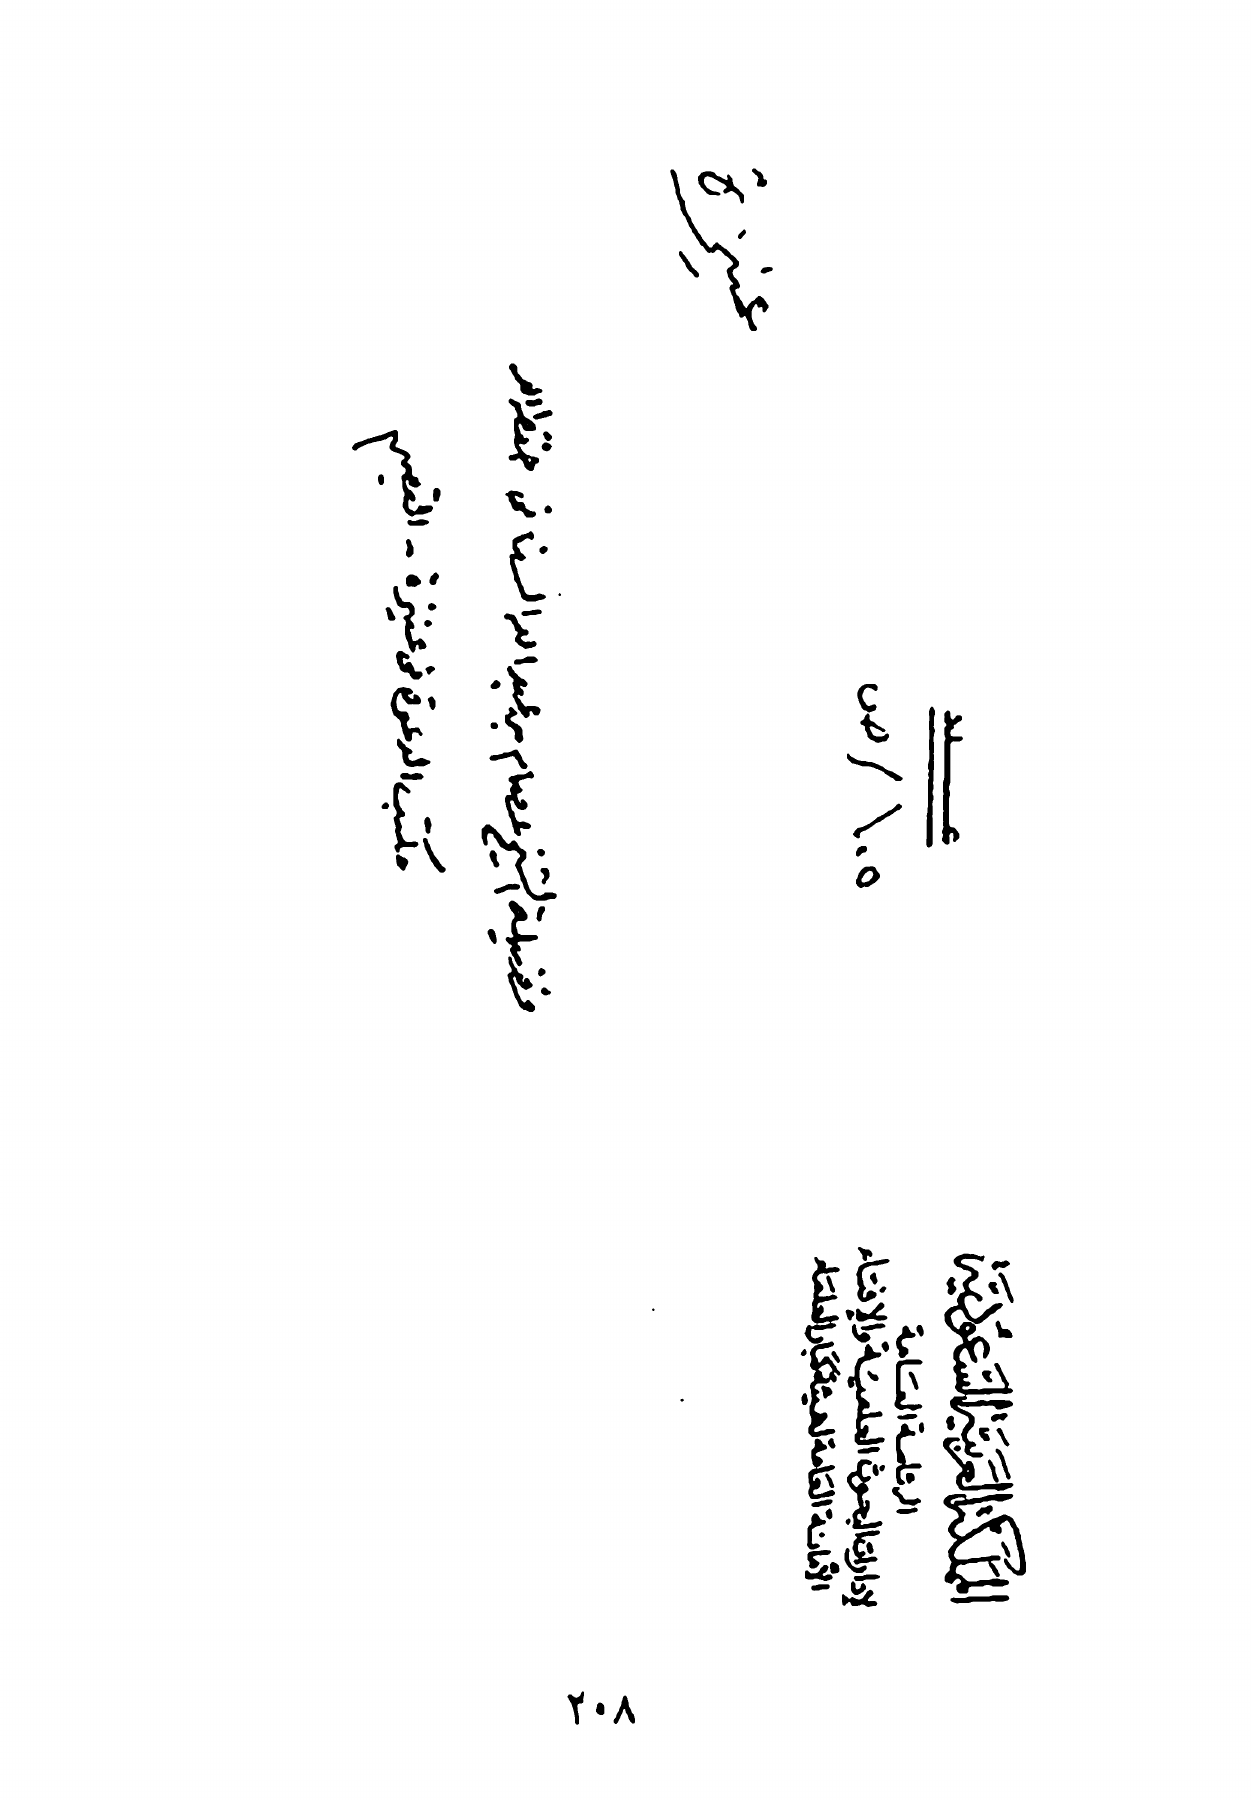 المملكة العربية السعودية
الرئاسة العامة
لإدارات البحوث العلمية والإفتاء
الأمانة العامة لهيئة كبار العلماء
ص / ١٠٥
عنيزة
فضيلة الشيخ عصام بن عبد السناني حفظه الله
مكتب الدعوة في عنيزة - القصيم
٢٠٨